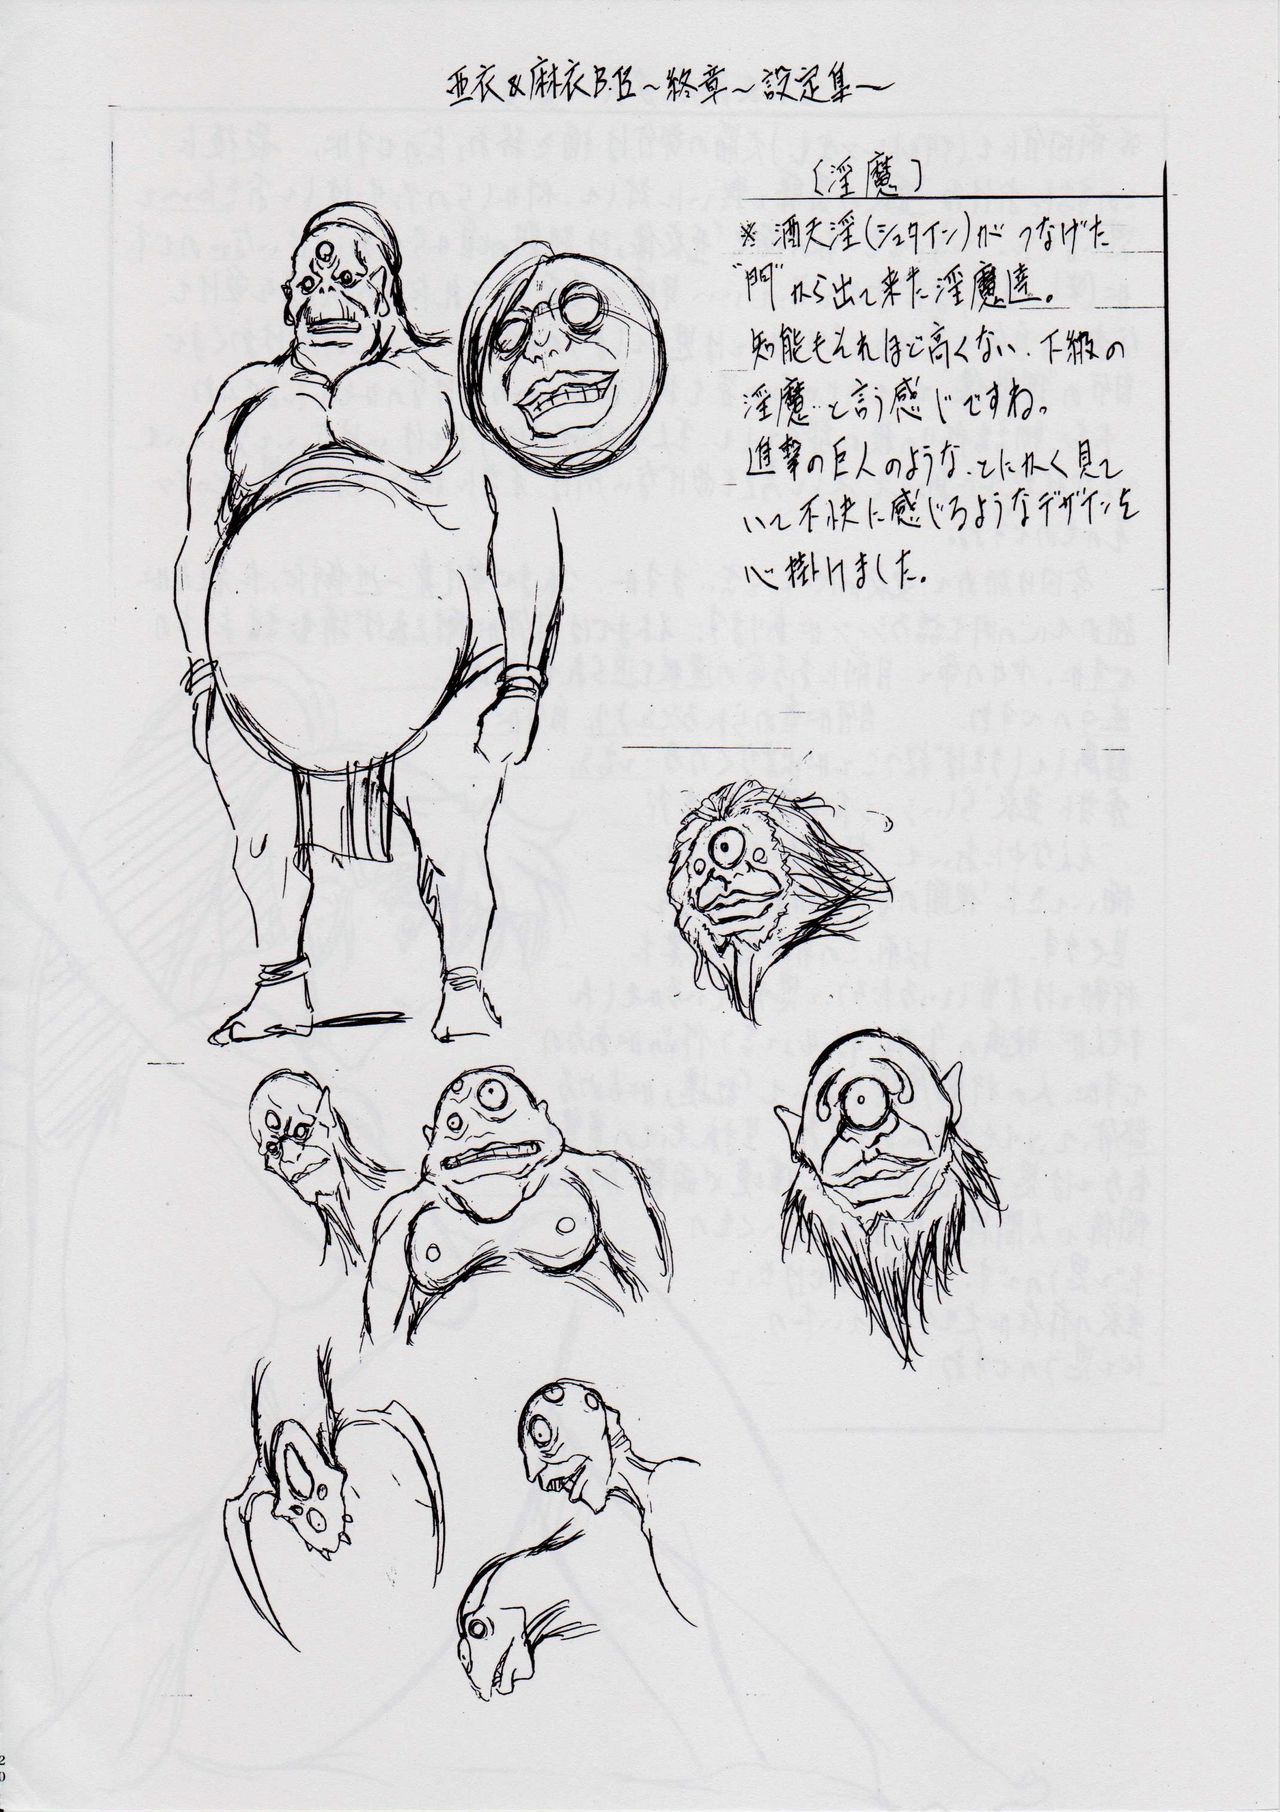 亜衣&麻衣B.B～終章～設定集～
〔淫魔〕
※酒天淫(シュタイン)がつなげた
"門"から出て来た淫魔達。
知能もそれほど高くない、下級の
淫魔…と言う感じですね。
進撃の巨人のような、とにかく見て
いて不快に感じるようなデザインを
心掛けました。
20